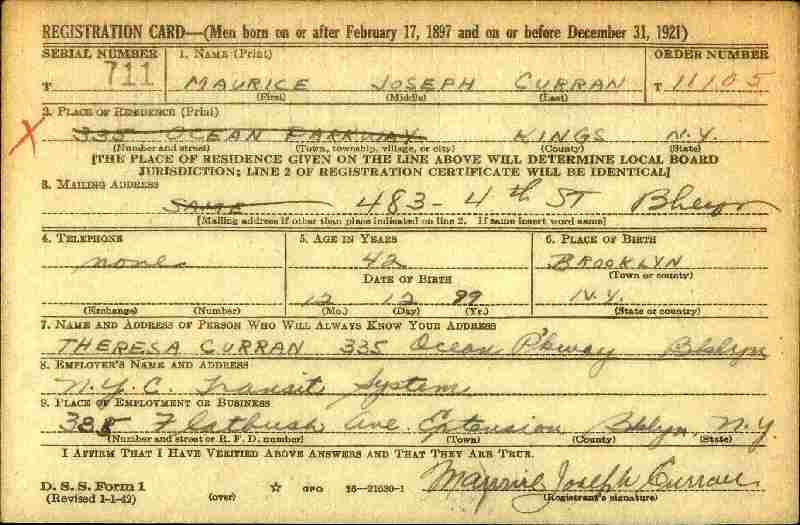 REGISTRATION CARD—(Men born on or after February 17, 1897 and on or before December 31, 1921)
SERIAL NUMBER 1. NAME (Print) ORDER NUMBER
T 711 MAURICE JOSEPH CURRAN T 11105
(First) (Middle) (Last)
2. PLACE OF RESIDENCE (Print)
335 OCEAN PARKWAY KINGS N.Y.
(Number and street) (Town, township, village, or city) (County) (State)
[THE PLACE OF RESIDENCE GIVEN ON THE LINE ABOVE WILL DETERMINE LOCAL BOARD
JURISDICTION; LINE 2 OF REGISTRATION CERTIFICATE WILL BE IDENTICAL]
3. MAILING ADDRESS
SAME 483-4th ST
[Mailing address if other than place indicated on line 2. If same insert word same]
4. TELEPHONE 5. AGE IN YEARS 6. PLACE OF BIRTH
none 42 BROOKLYN
DATE OF BIRTH (Town or county)
12 12 99 N.Y.
(Exchange) (Number) (Mo.) (Day) (Yr.) (State or country)
7. NAME AND ADDRESS OF PERSON WHO WILL ALWAYS KNOW YOUR ADDRESS
THERESA CURRAN 335 Ocean P'kway Bklyn
8. EMPLOYER'S NAME AND ADDRESS
N.Y.C. Transit System
9. PLACE OF EMPLOYMENT OR BUSINESS
385 Flatbush Ave. Extension Bklyn, N.Y.
(Number and street or R. F. D. number) (Town) (County) (State)
I AFFIRM THAT I HAVE VERIFIED ABOVE ANSWERS AND THAT THEY ARE TRUE.
D. S. S. Form 1 Maurice Joseph Curran
(Revised 1-1-42) (over) GPO 16—21630-1 (Registrant's signature)